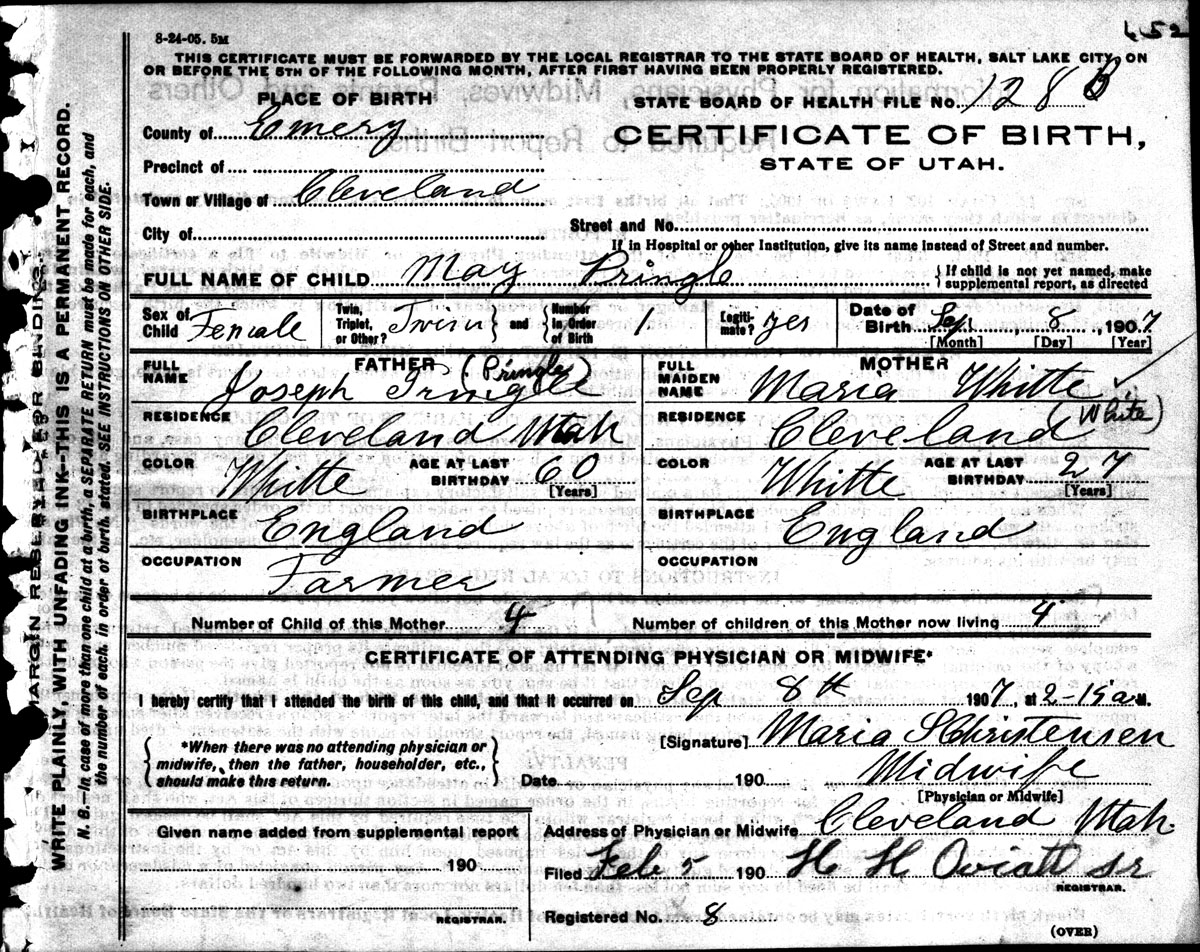 8-24-05. 5M
652
THIS CERTIFICATE MUST BE FORWARDED BY THE LOCAL REGISTRAR TO THE STATE BOARD OF HEALTH, SALT LAKE CITY, ON
OR BEFORE THE 5TH OF THE FOLLOWING MONTH, AFTER FIRST HAVING BEEN PROPERLY REGISTERED.
PLACE OF BIRTH
STATE BOARD OF HEALTH FILE No. 128 B
County of Emery
CERTIFICATE OF BIRTH,
STATE OF UTAH.
Precinct of
Town or Village of Cleveland
City of
Street and No.
If in Hospital or other Institution, give its name instead of Street and number.
FULL NAME OF CHILD May Pringle
{If child is not yet named, make
supplemental report, as directed
Sex of Child Female
Twin, Triplet, or Other? Twin } and { Number in Order of Birth 1
Legiti-mate? yes
Date of Birth Sep, 8, 1907
[Month] [Day] [Year]
FATHER
FULL NAME Joseph Tringle (Pringle)
MOTHER
FULL MAIDEN NAME Maria Whitte
(White)
RESIDENCE Cleveland Utah
RESIDENCE Cleveland
COLOR Whitte
AGE AT LAST BIRTHDAY 60
[Years]
COLOR Whitte
AGE AT LAST BIRTHDAY 27
[Years]
BIRTHPLACE England
BIRTHPLACE England
OCCUPATION Farmer
OCCUPATION
Number of Child of this Mother 4
Number of children of this Mother now living 4
CERTIFICATE OF ATTENDING PHYSICIAN OR MIDWIFE*
I hereby certify that I attended the birth of this child, and that it occurred on Sep 8th 1907, at 2-15 a M.
{*When there was no attending physician or
midwife, then the father, householder, etc.,
should make this return.}
[Signature] Maria S Christensen
Date 190
Midwife
[Physician or Midwife]
Given name added from supplemental report
190
REGISTRAR.
Address of Physician or Midwife Cleveland Utah
Filed Feb 5 190 H H Oviatt sr
REGISTRAR.
Registered No. 8
(OVER)
MARGIN RESERVED FOR BINDING.
WRITE PLAINLY, WITH UNFADING INK—THIS IS A PERMANENT RECORD.
N. B.—In case of more than one child at a birth, a SEPARATE RETURN must be made for each, and
the number of each, in order of birth stated. SEE INSTRUCTIONS ON OTHER SIDE.